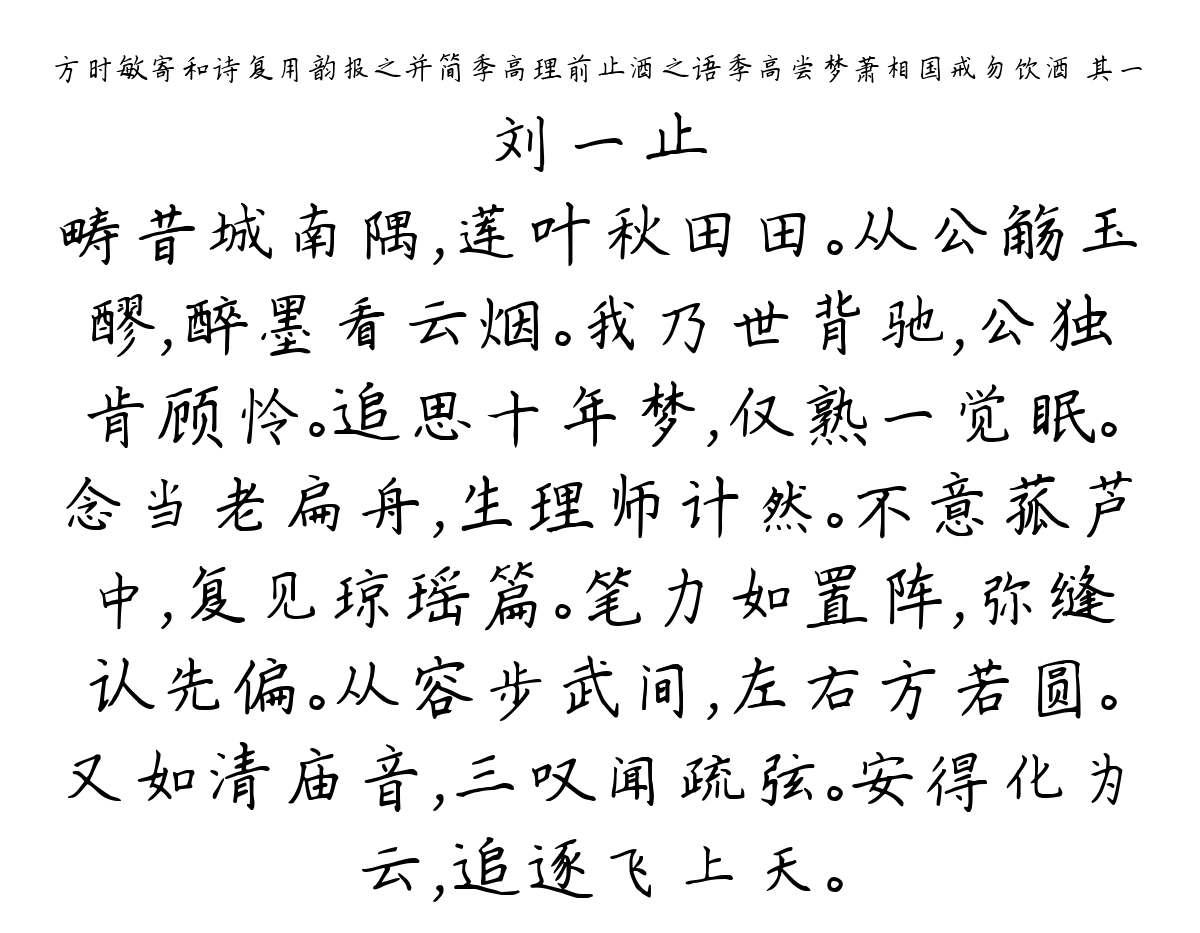 方时敏寄和诗复用韵报之并简季高理前止酒之语季高尝梦萧相国戒勿饮酒 其一
刘一止
畴昔城南隅,莲叶秋田田。从公觞玉
醪,醉墨看云烟。我乃世背驰,公独
肯顾怜。追思十年梦,仅熟一觉眠。
念当老扁舟,生理师计然。不意菰芦
中,复见琼瑶篇。笔力如置阵,弥缝
认先偏。从容步武间,左右方若圆。
又如清庙音,三叹闻疏弦。安得化为
云,追逐飞上天。